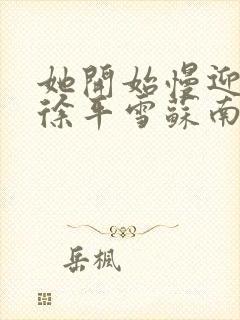 她開始慢迎
徐平雪蘇南
岳楓